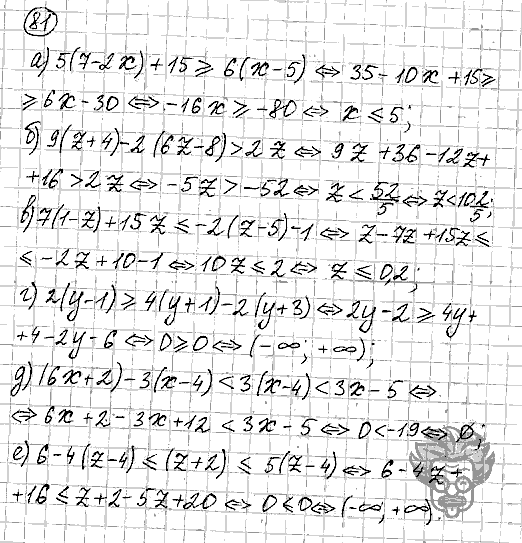 81
а) 5(7-2x)+15 ≥ 6(x-5) ⇔ 35-10x+15 ≥
≥ 6x-30 ⇔ -16x ≥ -80 ⇔ x ≤ 5;
б) 9(z+4)-2(6z-8)>2z ⇔ 9z+36-12z+
+16>2z ⇔ -5z>-52 ⇔ z<52/5 ⇔ z<10 2/5;
в) 7(1-z)+15z ≤ -2(z-5)-1 ⇔ z-7z+15z ≤
≤ -2z+10-1 ⇔ 10z ≤ 2 ⇔ z ≤ 0,2;
г) 2(y-1) ≥ 4(y+1)-2(y+3) ⇔ 2y-2 ≥ 4y+
+4-2y-6 ⇔ 0 ≥ 0 ⇔ (-∞; +∞);
д) (6x+2)-3(x-4)<3(x-4)<3x-5 ⇔
⇔ 6x+2-3x+12<3x-5 ⇔ 0<-19 ⇔ ∅;
е) 6-4(z-4) ≤ (z+2) ≤ 5(z-4) ⇔ 6-4z+
+16 ≤ z+2-5z+20 ⇔ 0 ≤ 0 ⇔ (-∞; +∞).